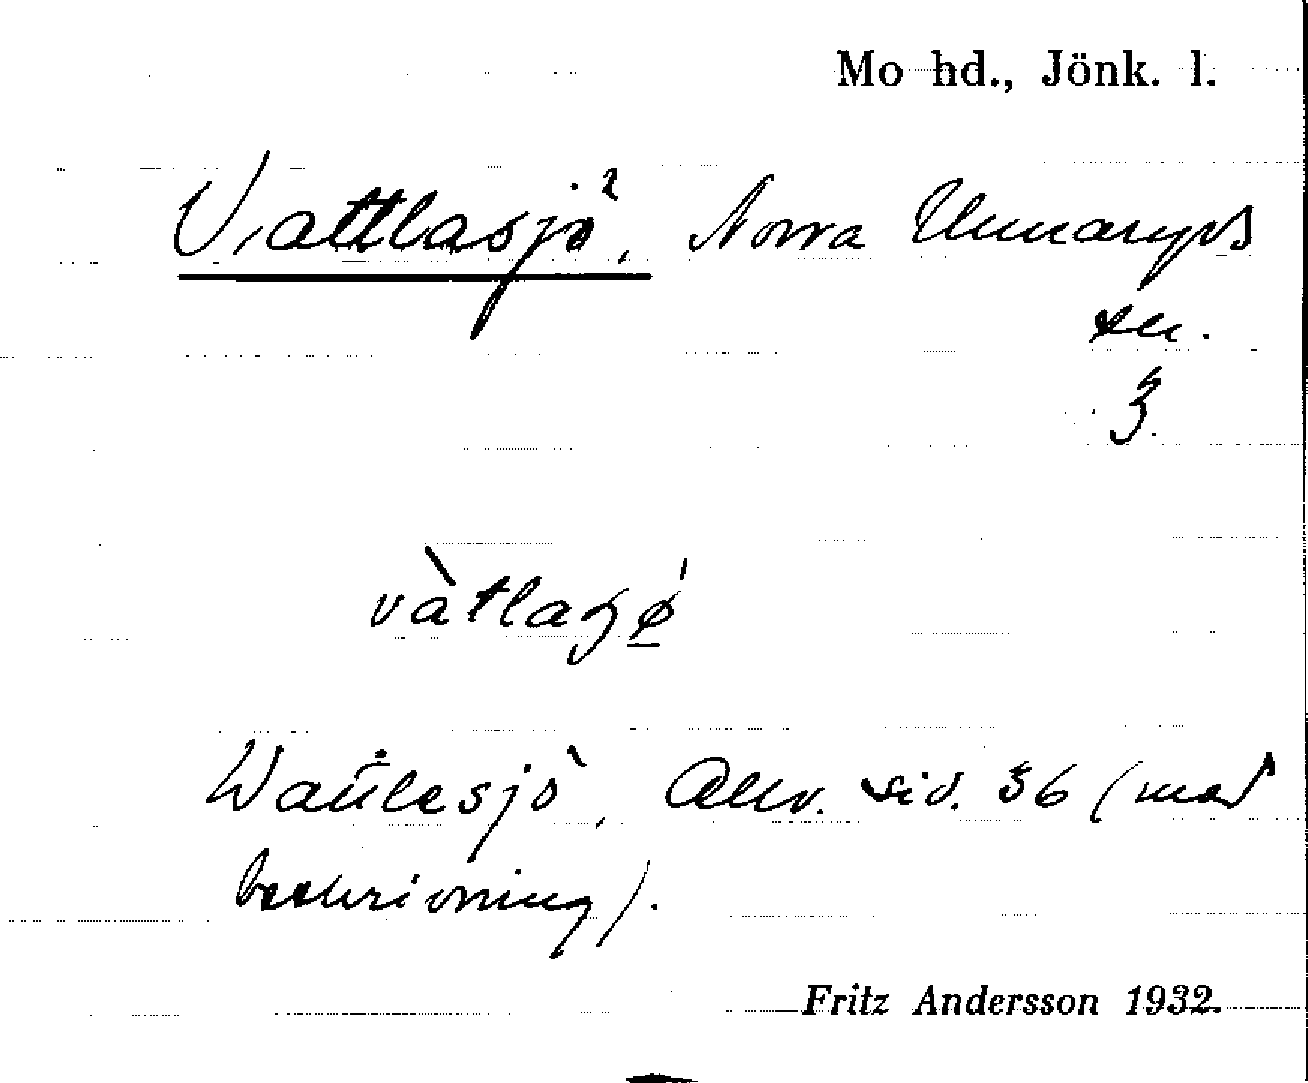 Mo hd., Jönk. l.
Vattlasjö, Norra Unnaryds
sn.
3.
Allv. sid. 36 (med
beskrivning).
Fritz Andersson 1932.